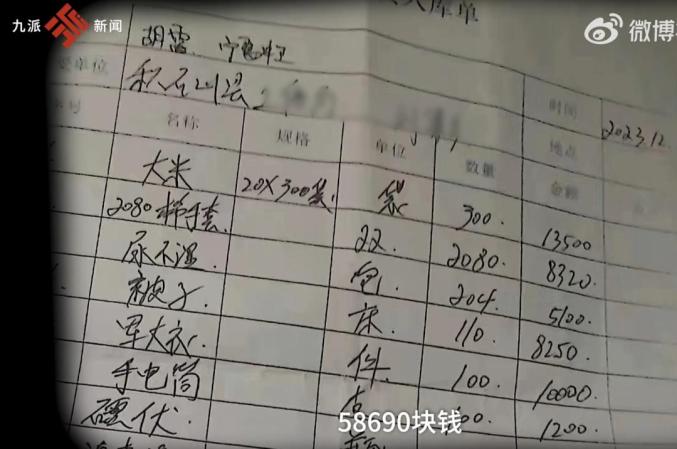 九派 新闻
库单
微博
胡雷、
单位
积石山县
时间
2023.12.
号 名称 规格 单位 数量 地点
金额
大米 20X300袋 袋 300. 13500
2080 手套 双. 2080. 8320.
尿不湿 包. 204. 5100.
被子. 床. 110. 8250.
军大衣. 件. 100. 10000.
手电筒 00. 1200.
58690块钱